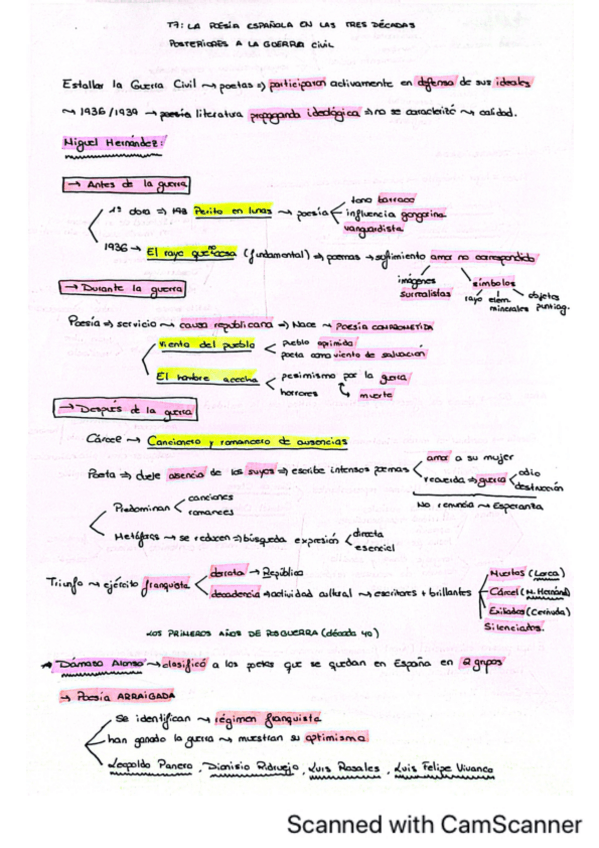 T7: LA POESÍA ESPAÑOLA EN LAS TRES DÉCADAS
POSTERIORES A LA GUERRA CIVIL
Estallar la Guerra Civil → poetas => participaron activamente en defensa de sus ideales
→ 1936/1939 → poesía literatura propaganda ideológica => no se caracterizó → calidad.
Miguel Hernández:
→ Antes de la guerra
1ª obra => 193 Perito en lunas → poesía
tono barroco
influencia gongorina
vanguardista
1936 → El rayo que no cesa (fundamental) => poemas → sufrimiento amor no correspondido
imágenes surrealistas
símbolos
rayo elem. minerales objetos puntiag.
→ Durante la guerra
Poesía => servicio → causa republicana => Nace → POESÍA COMPROMETIDA
Viento del pueblo
pueblo oprimido
poeta como viento de salvación
El hombre acecha
pesimismo por la guerra
horrores
muerte
→ Después de la guerra
Cárcel → Cancionero y romancero de ausencias
Poeta => duele ausencia de los suyos => escribe intensos poemas
amor a su mujer
recuerda => guerra
odio
destrucción
No renuncia → Esperanza
Predominan
canciones
romances
Metáforas → se reducen => búsqueda expresión
directa
esencial
Triunfo → ejército franquista
derrota → República
decadencia → actividad cultural → escritores + brillantes
Muertos (Lorca)
Cárcel (M. Hernánd)
Exiliados (Cernuda)
Silenciados.
LOS PRIMEROS AÑOS DE POSGUERRA (década 40)
Dámaso Alonso → clasificó a los poetas que se quedan en España en 2 grupos
→ Poesía ARRAIGADA
Se identifican → régimen franquista
han ganado la guerra → muestran su optimismo
Leopoldo Panero, Dionisio Ridruejo, Luis Rosales, Luis Felipe Vivanco
Scanned with CamScanner